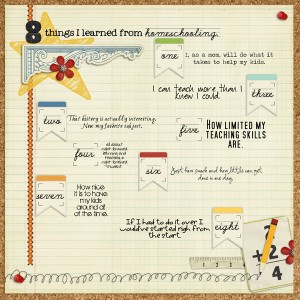 8 things I learned from homeschooling.
one
I, as a mom, will do what it
takes to help my kids.
I can teach more than I
knew I could.
three
two
That history is actually interesting.
Now my favorite subject.
five
How limited my
teaching skills
are.
four
all about
six
Just how much and how little can get
done in one day.
seven
How nice
it is to have
my kids
around all
of the time.
If I had to do it over I
would've started right from
the start.
eight
2
+ 2
4